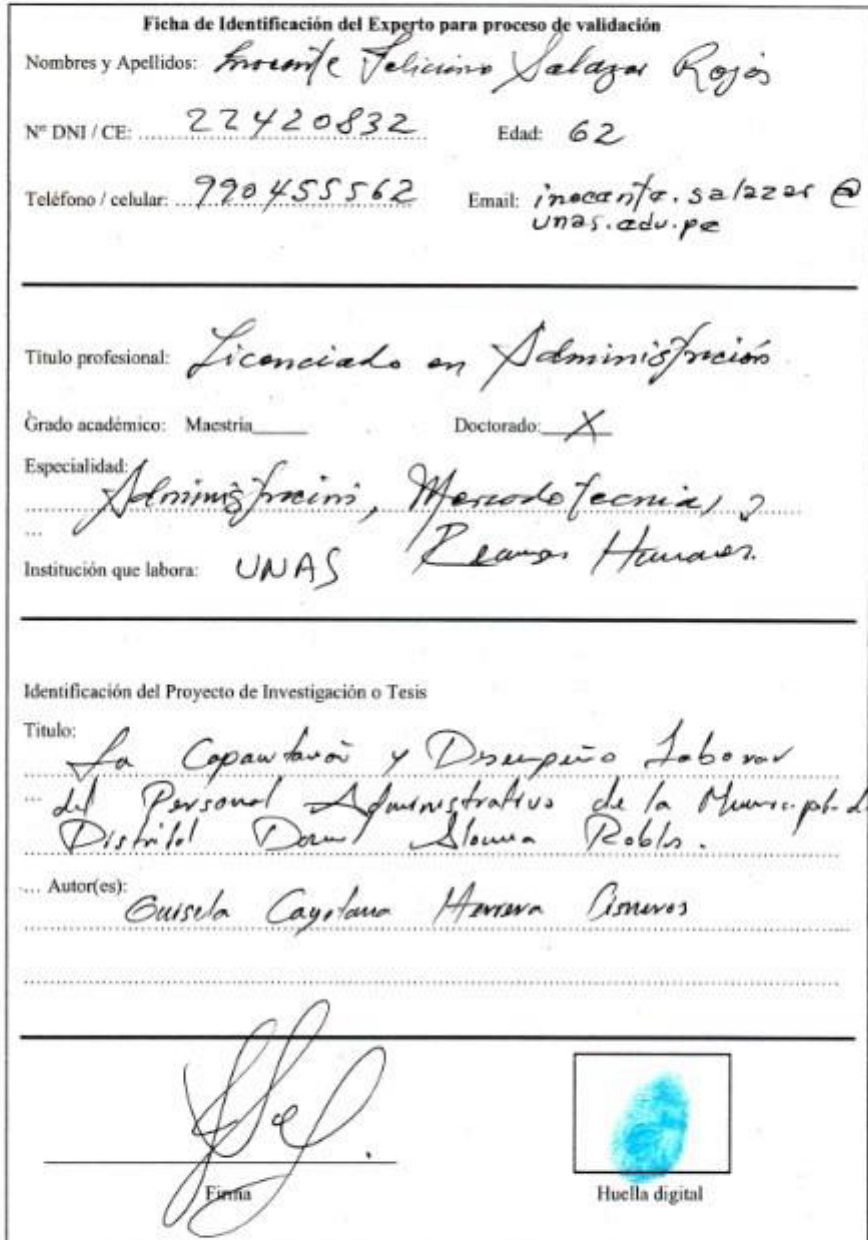 Ficha de Identificación del Experto para proceso de validación
Nombres y Apellidos: Inocente Feliciano Salazar Rojas
Nº DNI / CE: 22420832 Edad: 62
Teléfono / celular: 990455562 Email: inocente.salazar@
unas.edu.pe
Título profesional: Licenciado en Administración
Grado académico: Maestría____ Doctorado: X
Especialidad:
Administración, Mercadotecnia, y
... Recursos Humanos.
Institución que labora: UNAS
Identificación del Proyecto de Investigación o Tesis
Titulo:
La Capacitación y Desempeño Laboral
... del Personal Administrativo de la
Distrital Alomia Robles.
... Autor(es):
Guisela Cayetana Herrera Cisneros
Firma
Huella digital